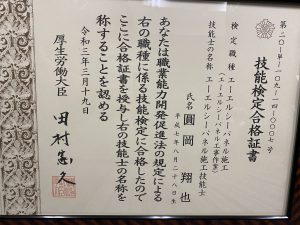 第二〇-単一-一〇九-一四-〇〇〇七号
技能検定合格証書
検定職種 エーエルシーパネル施工
(エーエルシーパネル工事作業)
技能士の名称 エーエルシーパネル施工技能士
氏名 圓岡 翔也
平成七年八月二十八日生
あなたは職業能力開発促進法の規定による
右の職種に係る技能検定に合格したので
ここに合格証書を授与し右の技能士の名称を
称することを認める
令和三年三月十九日
厚生労働大臣 田村憲久